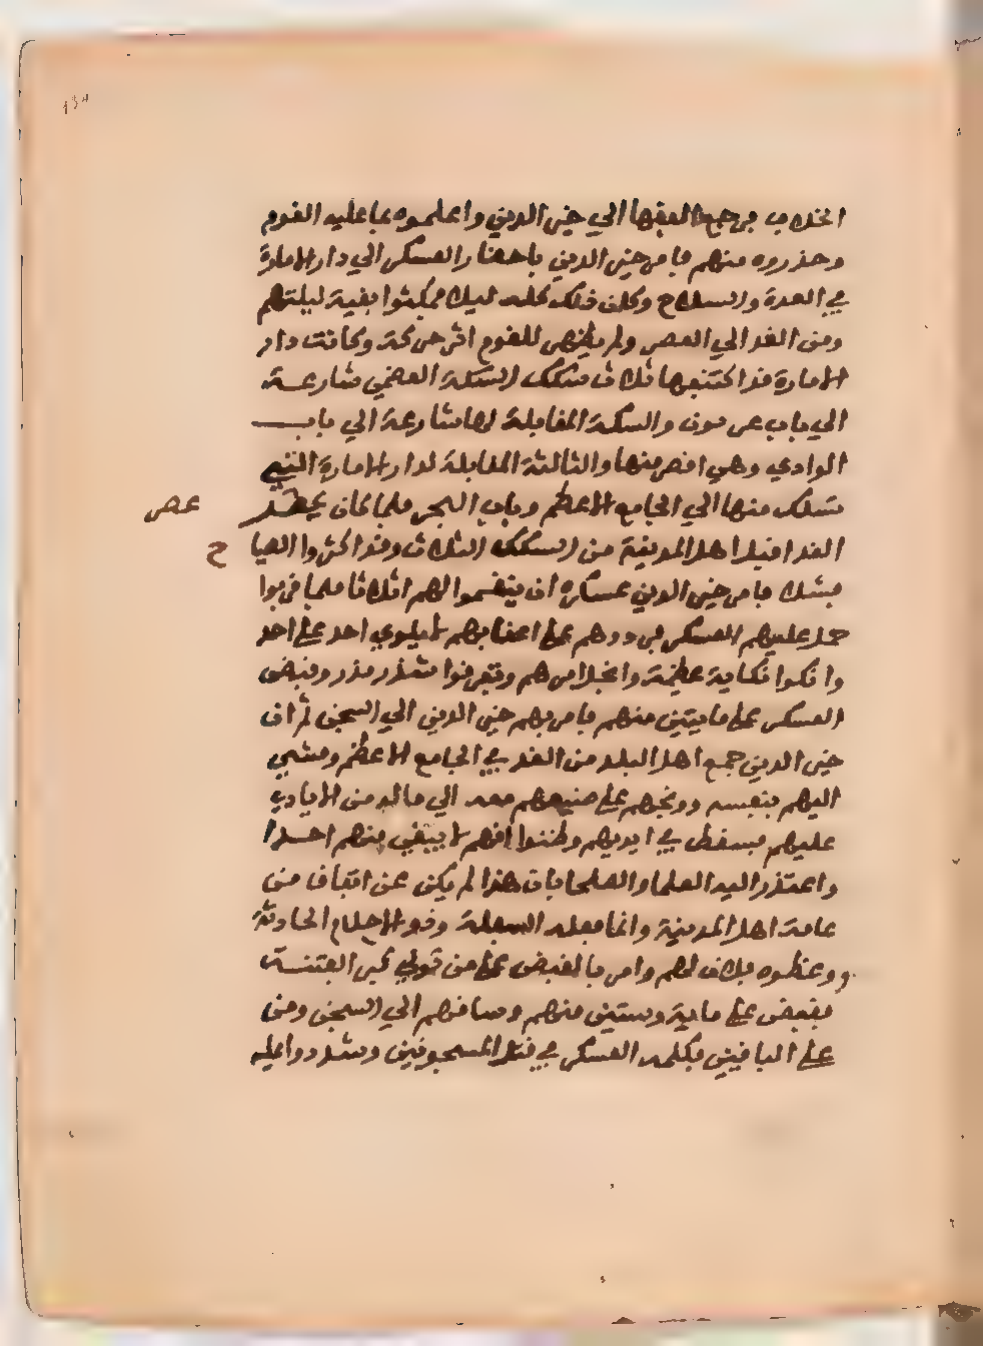 الخلاب فرجع الفقها الي خير الدين واعلموه بما عليه القوم
وحذروه منهم فامر خير الدين باحضار العسكر الي دار الامارة
في العدة والسلاح وكان ذلك كله ليلا فمكثوا بقية ليلتهم
ومن الغد الي العصر ولم يظهر للقوم اثر حركة وكانت دار
الامارة قد اكتنفها ثلاث سكك السكة العضمي شارعة
الي باب عزون والسكة المقابلة لها شارعة الي باب
الوادي وهي اقصر منها والثالثة المقابلة لدار الامارة التي
تسلك منها الي الجامع الاعظم وباب البحر فلما كان
عصر
الغد اقبل اهل المدينة من السكك الثلاث وقد اكثروا الصيا
ح
فامر خير الدين عسكره ان ينقسموا لهم اثلاثا فلما قربوا
حمل عليهم العسكر فردوهم على اعقابهم لا يلوي احد على احد
وانكوا نكاية عظيمة وانجلا امرهم وتفرقوا شذر مذر وقبض
العسكر على مايتين منهم فامر بهم خير الدين الي السجن ثم ان
خير الدين جمع اهل البلد من الغد في الجامع الاعظم ومشي
اليهم بنفسه ووبخهم على صنيعهم معه الي ما له من الايادي
عليهم فسقط في ايديهم وظنوا انهم لا يبقي منهم احدا
واعتذر اليه العلما والصلحا بان هذا لم يكن عن اتفاق من
عامة اهل المدينة وانما فعله السفلة وذو الاحلام الحادثة
ووعظوه بلاف لهم وامر بالقبض على من تولي كبر الفتنة
فقبض على ماية وستين منهم وساقهم الي السجن ومن
على الباقين فكلمه العسكر في قتل المسجونين وشددوا عليه